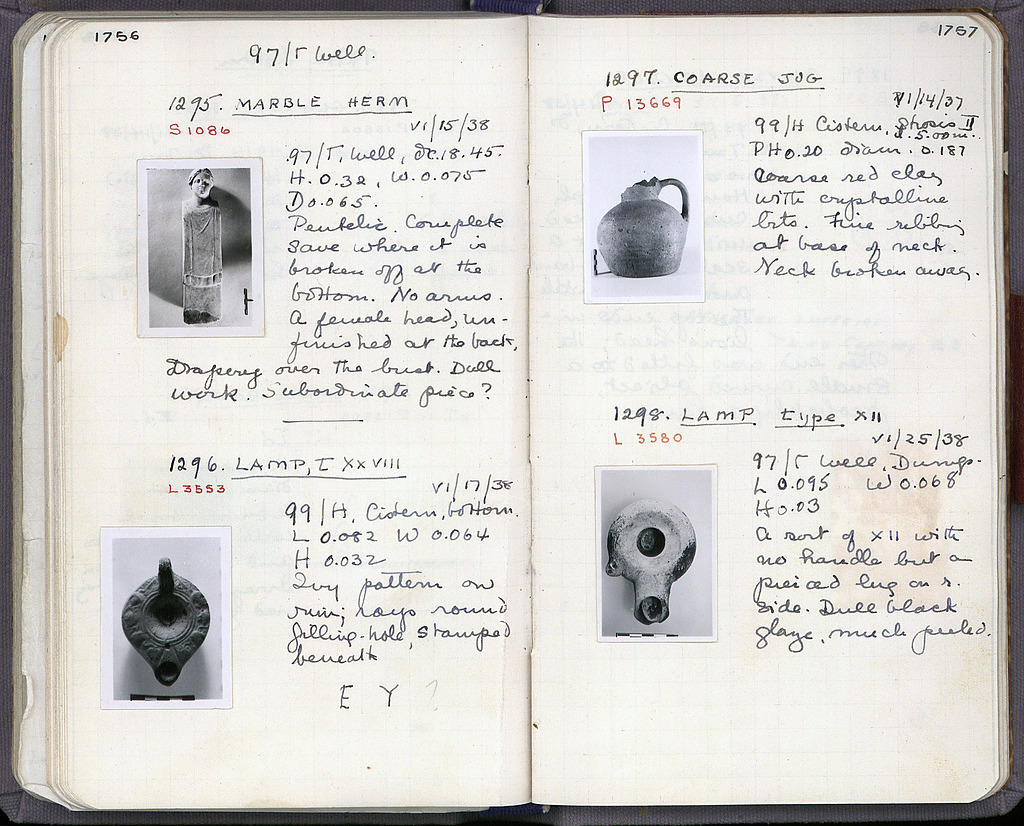 1756
97/Γ Well.
1295. MARBLE HERM
S 1086
VI/15/38
97/Γ, Well, 18.45.
H. 0.32, W. 0.075
D 0.065.
Pentelic. Complete
save where it is
broken off at the
bottom. No arms.
A female head, un-
finished at the back,
Drapery over the bust. Dull
work. Subordinate piece?
1296. LAMP, T XXVIII
L 3553
VI/17/38
99/H, Cistern, bottom.
L 0.082 W 0.064
H 0.032
Ivy pattern on
rim; rays round
filling-hole, stamped
beneath
E Y ?
1757
1297. COARSE JUG
P 13669
VI/14/37
99/H Cistern, II
5.00m.
PH 0.20 diam. 0.187
Coarse red clay
with crystalline
bits. Fine ribbing
at base of neck.
Neck broken away.
1298. LAMP type XII
L 3580
VI/25/38
97/Γ Well, Dump.
L 0.095 W 0.068
H 0.03
A sort of XII with
no handle but a
pierced lug on r.
side. Dull black
glaze, much peeled.